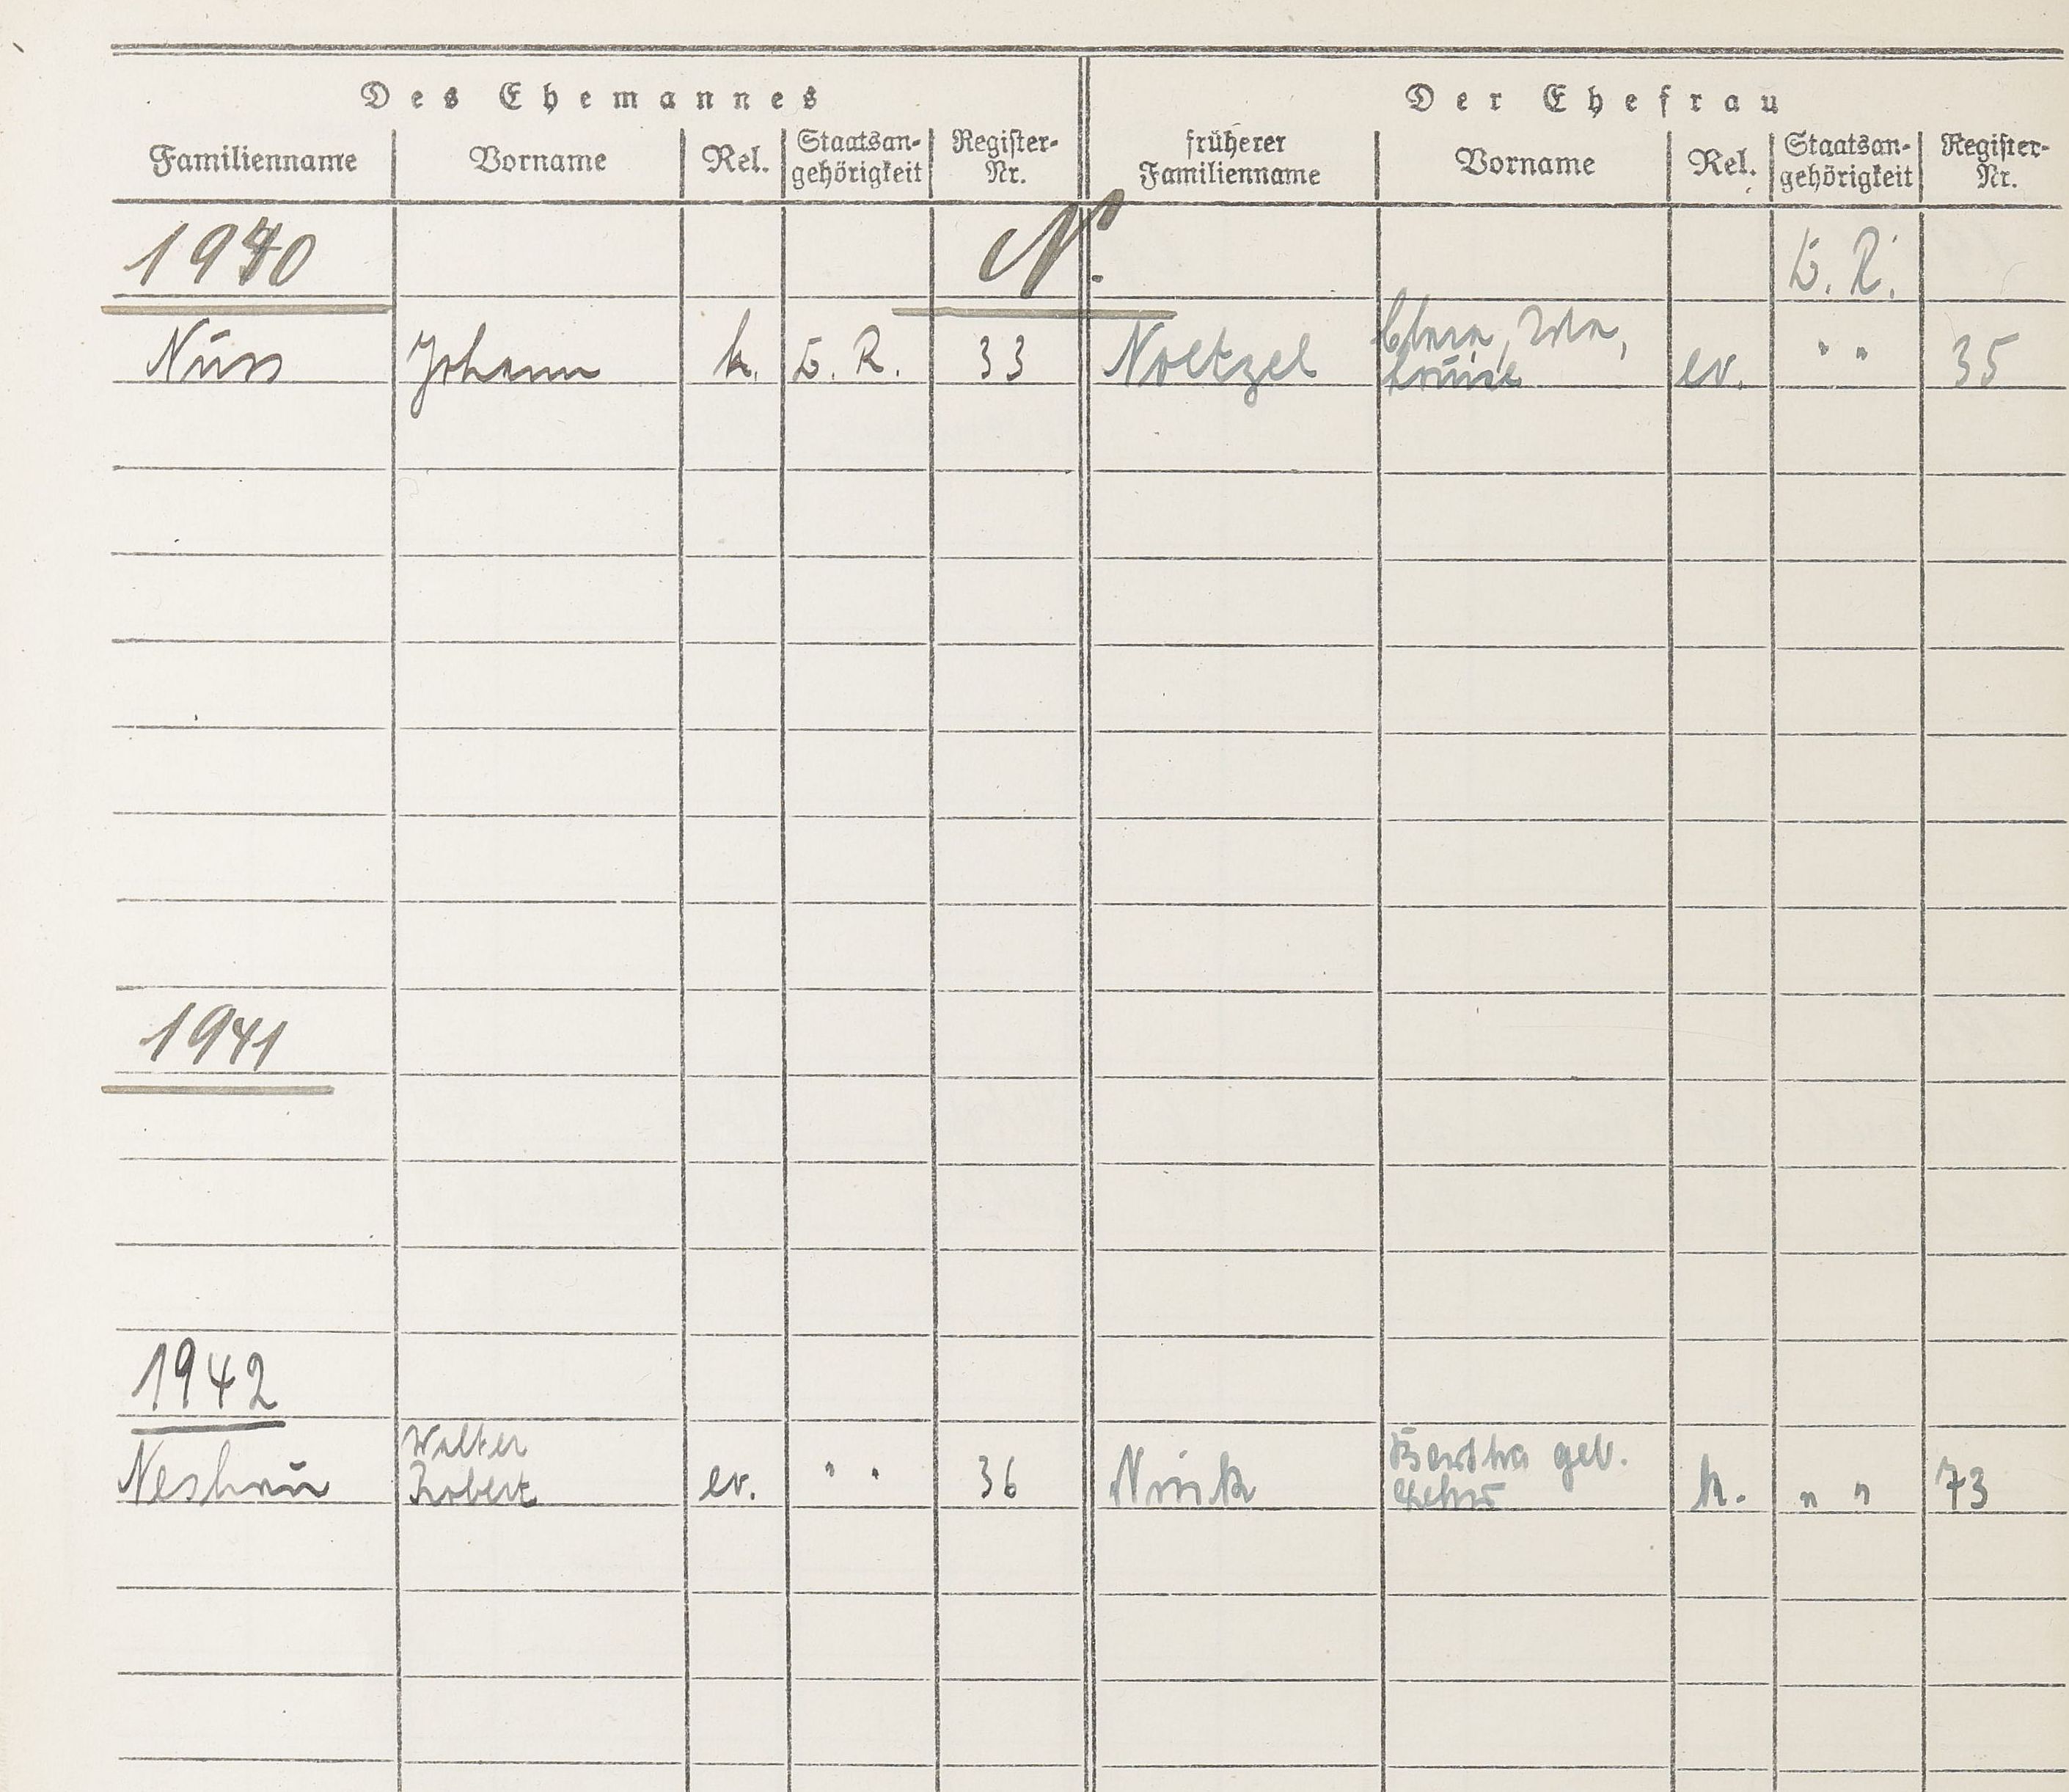 Des Ehemannes
Der Ehefrau
Familienname Vorname Rel. Staatsan-gehörigkeit Register-Nr. früherer Familienname Vorname Rel. Staatsan-gehörigkeit Register-Nr.
1940 N. D. R.
Nüss Johann k. D. R. 33 Noetzel Louise ev. " " 35
1941
1942
Walter Bertha geb.
Robert ev. " " 36 k. " " 73